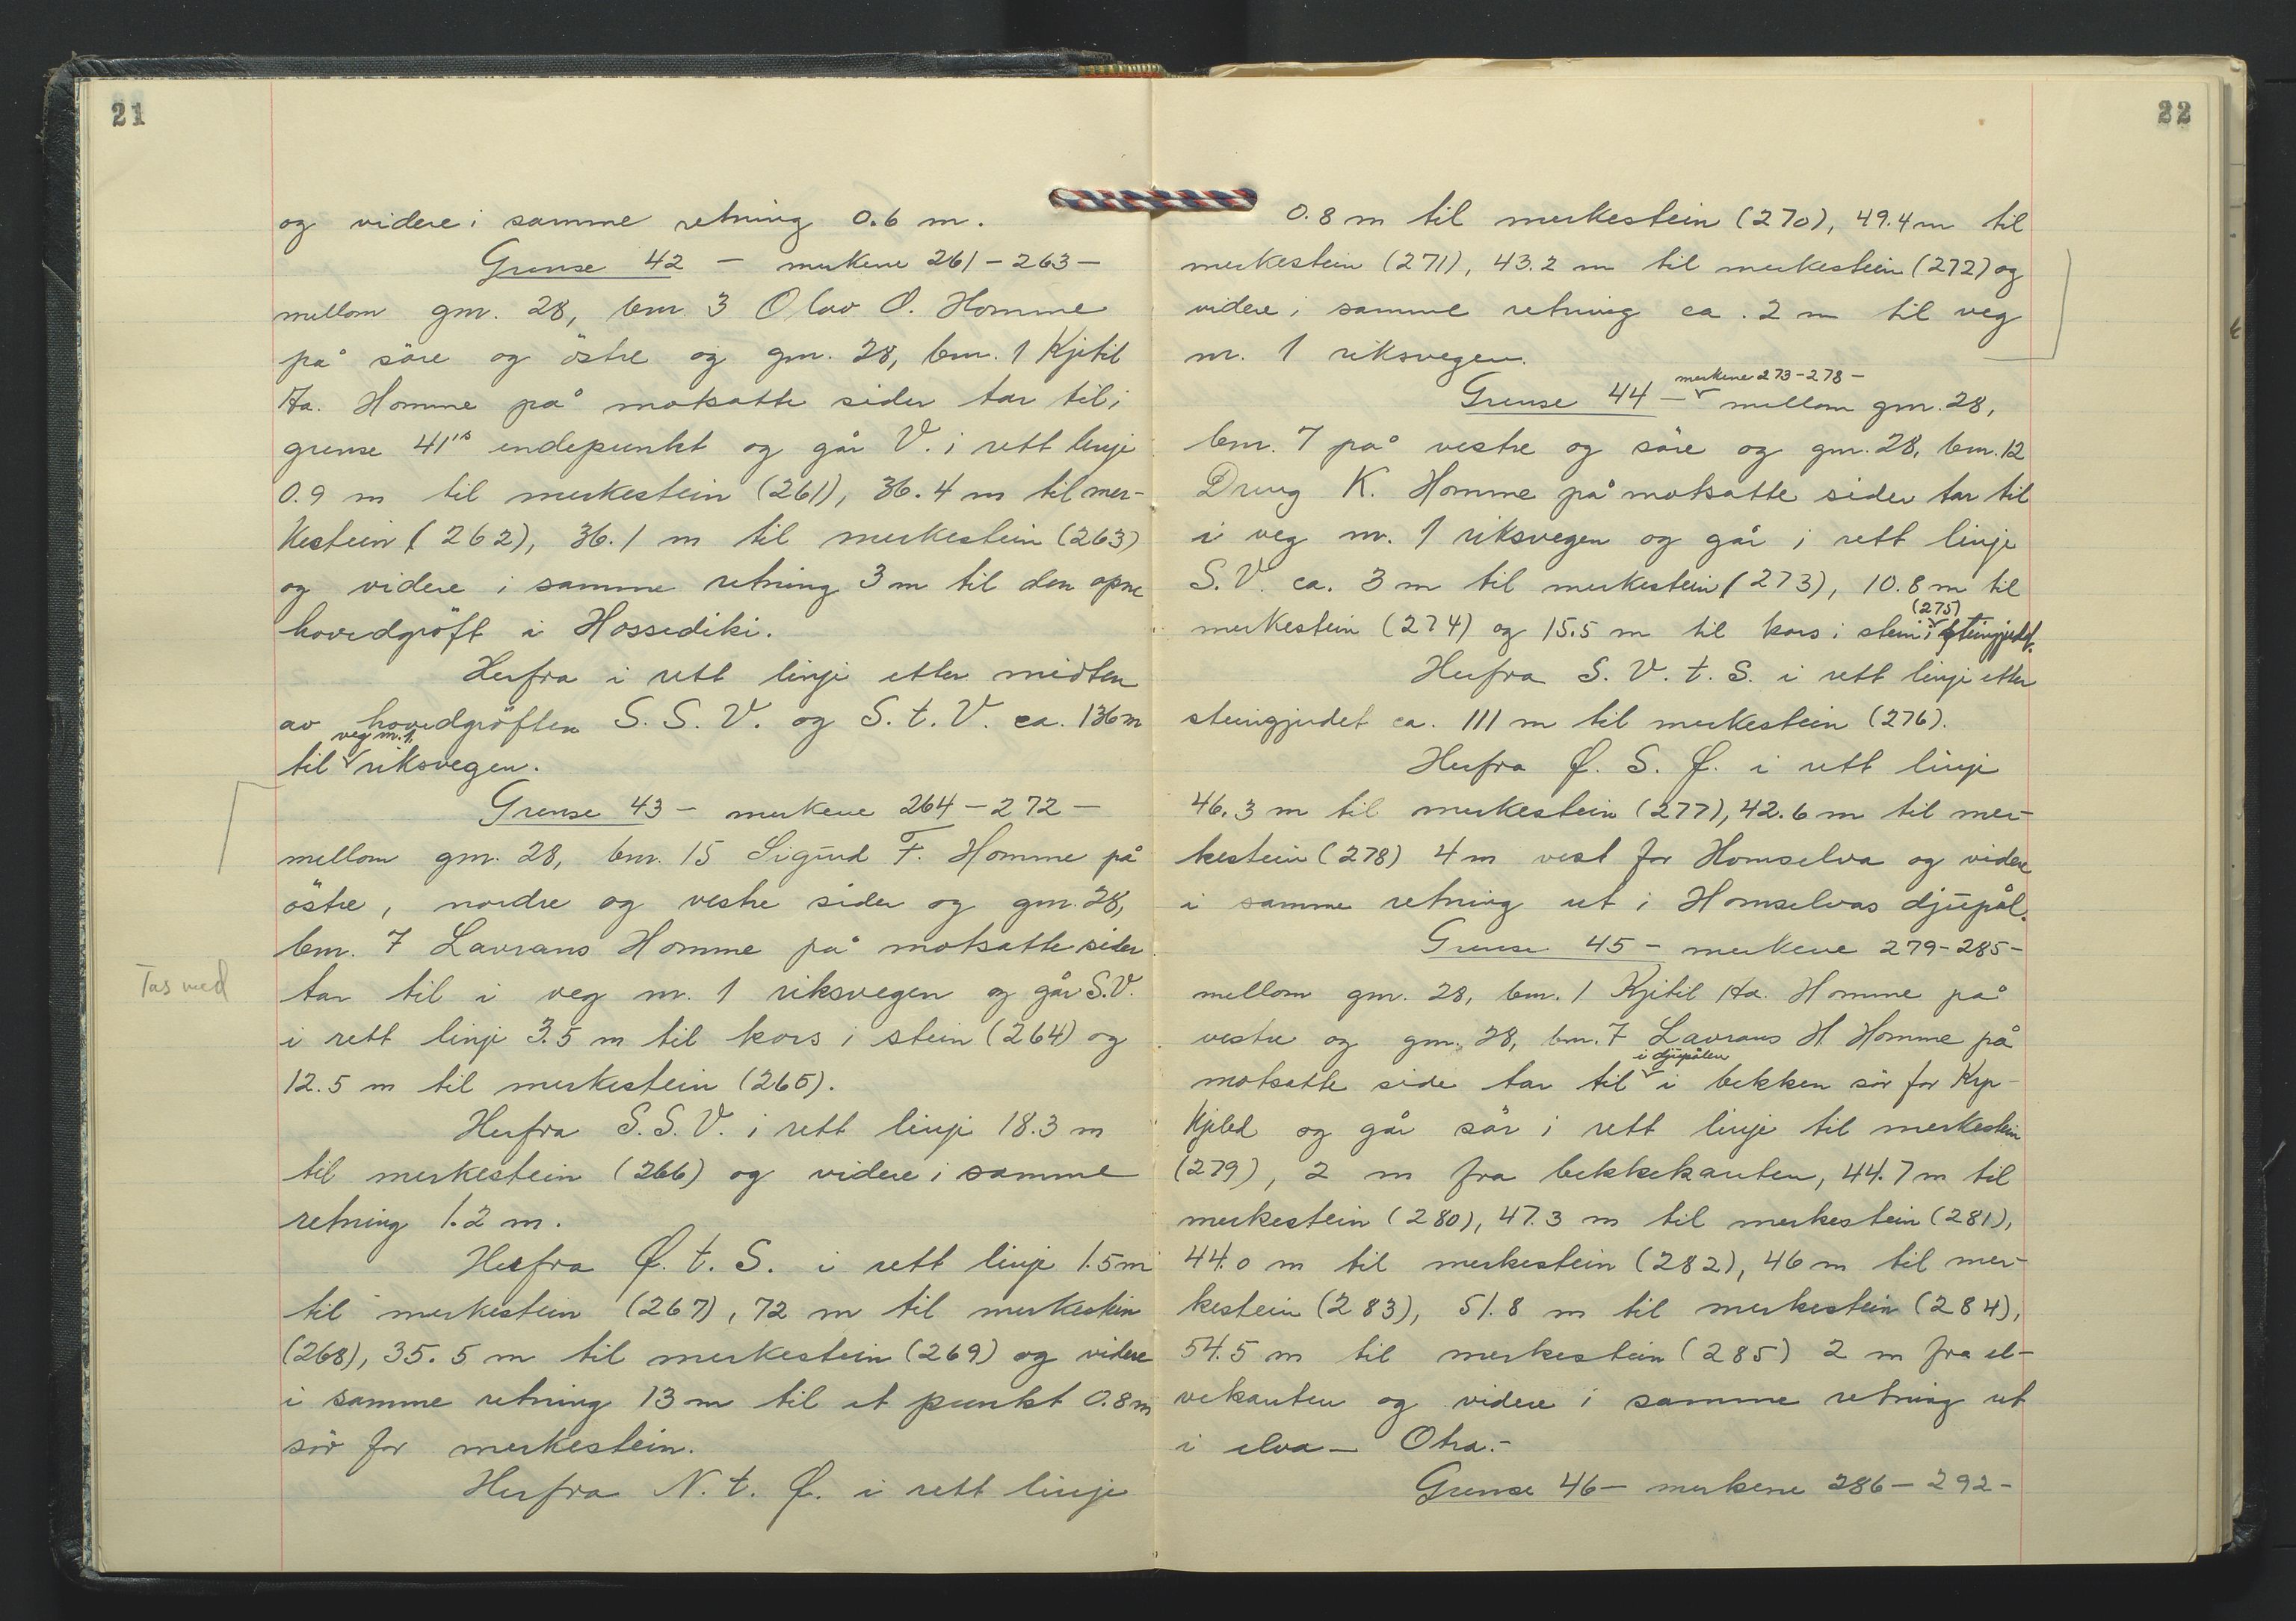 21
og videre i samme retning 0.6 m.
Grense 42 – merkene 261 – 263 –
mellom gnr. 28, bnr. 3 Olav O. Homme
på söre og östre og gnr. 28, bnr. 1 Kjetil
Ha. Homme på motsatte sider tar til i
grense 41's endepunkt og går V. i rett linje
0.9 m til merkestein (261), 36.4 m til mer-
kestein (262), 36.1 m til merkestein (263)
og videre i samme retning 3 m til den opne
hovedgröft i Hossediki.
Herfra i rett linje etter midten
av hovedgröften S. S. V. og S. t. V. ca. 136 m
veg nr. 1
til riksvegen.
Grense 43 – merkene 264 – 272 –
mellom gnr. 28, bnr. 15 Sigurd F. Homme på
östre, nordre og vestre sider og gnr. 28,
bnr. 7 Lavrans Homme på motsatte sider
Tas med
tar til i veg nr. 1 riksvegen og går S.V.
i rett linje 3.5 m til kors i stein (264) og
12.5 m til merkestein (265).
Herfra S. S. V. i rett linje 18.3 m
til merkestein (266) og videre i samme
retning 1.2 m.
Herfra Ø. t. S. i rett linje 1.5 m
til merkestein (267), 72 m til merkestein
(268), 35.5 m til merkestein (269) og videre
i samme retning 13 m til et punkt 0.8 m
sör for merkestein.
Herfra N. t. Ø. i rett linje
22
0.8 m til merkestein (270), 49.4 m til
merkestein (271), 43.2 m til merkestein (272) og
videre i samme retning ca. 2 m til veg
nr. 1 riksvegen.
merkene 273 – 278 –
Grense 44 – mellom gnr. 28,
bnr. 7 på vestre og söre og gnr. 28, bnr. 12
Dreng K. Homme på motsatte sider tar til
i veg nr. 1 riksvegen og går i rett linje
S. V. ca. 3 m til merkestein (273), 10.8 m til
(275)
merkestein (274) og 15.5 m til kors i stein i steingjerdet.
Herfra S. V. t. S. i rett linje etter
steingjerdet ca. 111 m til merkestein (276).
Herfra Ø. S. Ø. i rett linje
46.3 m til merkestein (277), 42.6 m til mer-
kestein (278) 4 m vest for Homselva og videre
i samme retning ut i Homselvas djupål.
Grense 45 – merkene 279 – 285 –
mellom gnr. 28, bnr. 1 Kjetil Ha. Homme på
vestre og gnr. 28, bnr. 7 Lavrans H. Homme på
i djupålen
motsatte side tar til i bekken sör for
og går sör i rett linje til merkestein
(279), 2 m fra bekkekanten, 44.7 m til
merkestein (280), 47.3 m til merkestein (281),
44.0 m til merkestein (282), 46 m til mer-
kestein (283), 51.8 m til merkestein (284),
54.5 m til merkestein (285) 2 m fra el-
vekanten og videre i samme retning ut
i elva – Otra. –
Grense 46 – merkene 286 – 292 –